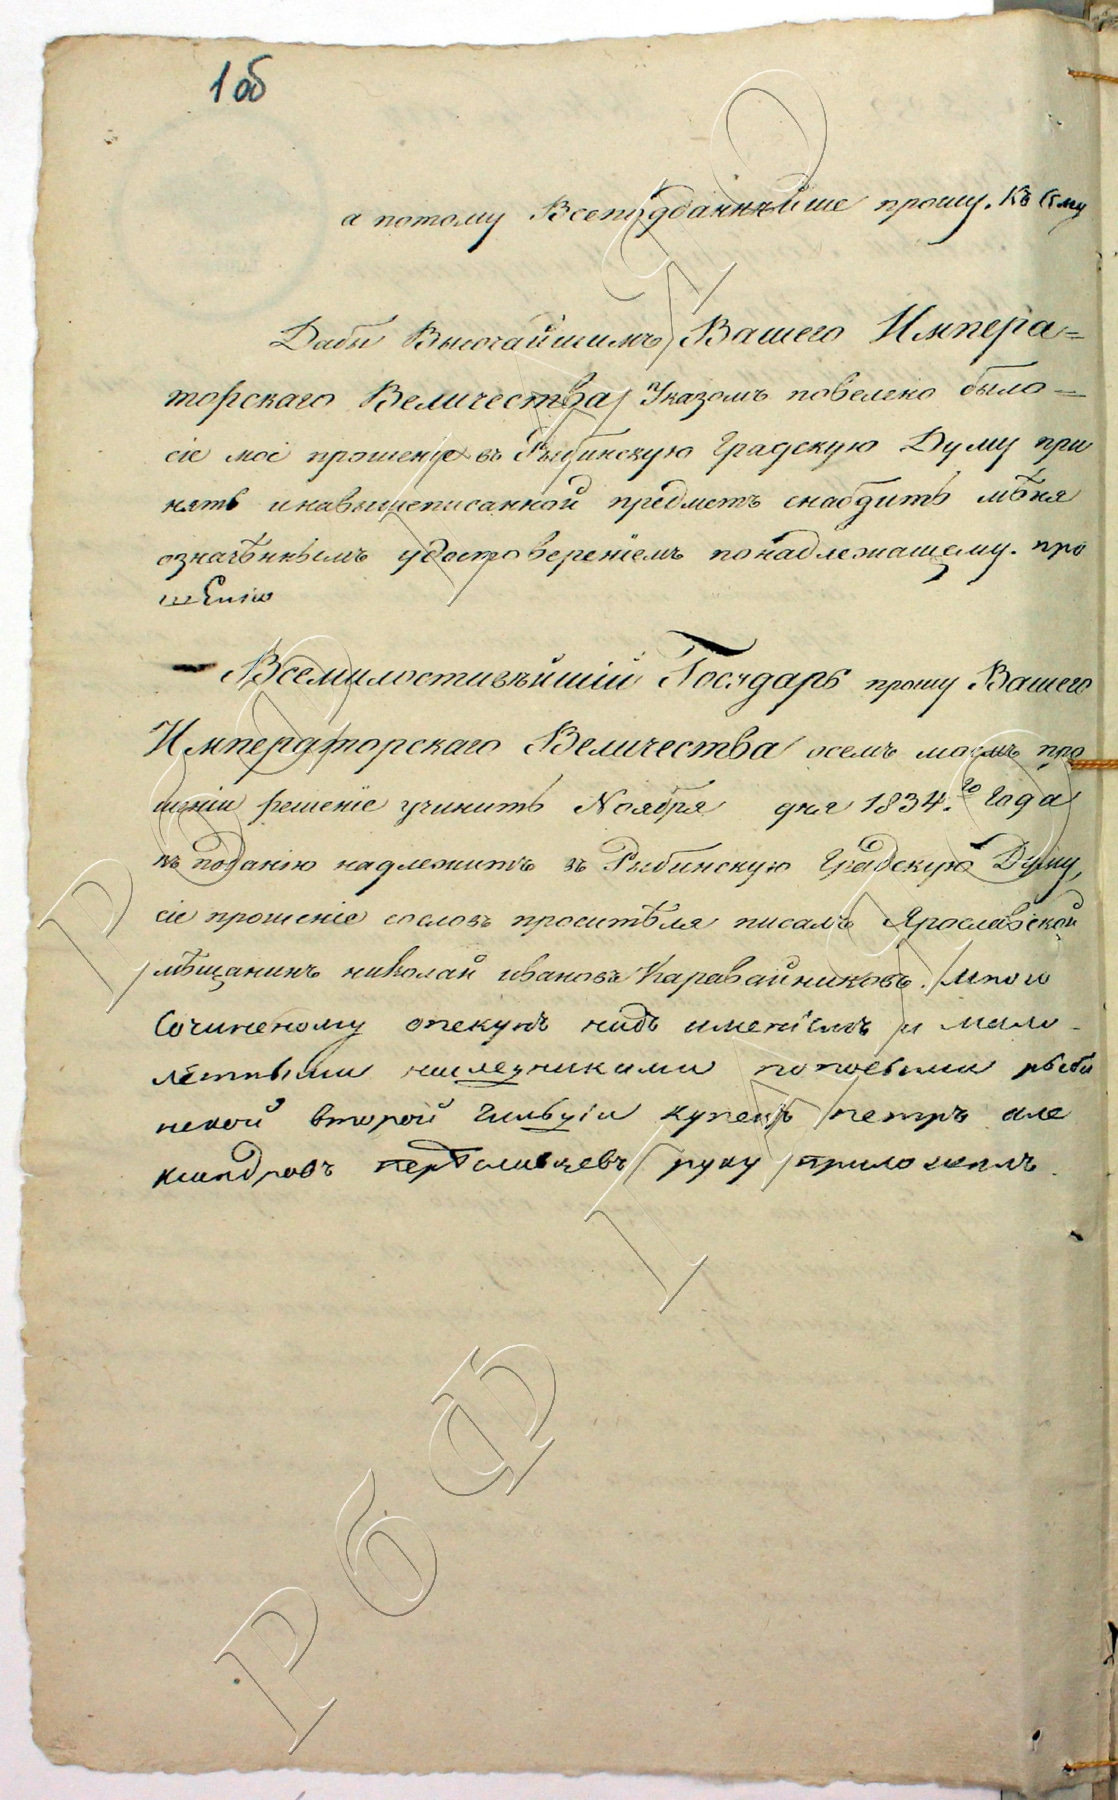 1 об
а потому Всеподданнѣйше прошу. Къ сему
Дабы Высочайшимъ Вашего Импера=
торскаго Величества Указомъ повелено было=
сіе мое прошеніе въ Рыбинскую Градскую Думу при
нять инавышеписанной предметъ снабдить мѣня
означѣннымъ удостоверенiемъ понадлежащему. про
шенію
Всемилостивѣйшій Государь прошу Вашего
Императорскаго Величества осемъ моемъ про
шеніи решеніе учинить Ноября дня 1834.го Года
къ поданію надлежитъ въ Рыбинскую Градскую Думу,
сіе прошеніе сословъ проситѣля писалъ Ярославской
мѣщанинъ николай ивановъ Каравайниковъ.
Сочиненому опекунъ надъ именіемъ и мало
лѣтными наследниками поповыми рыби
нской второй гильдіи купецъ петръ але
ксандровъ руку приложилъ
РбФ ГАЯО